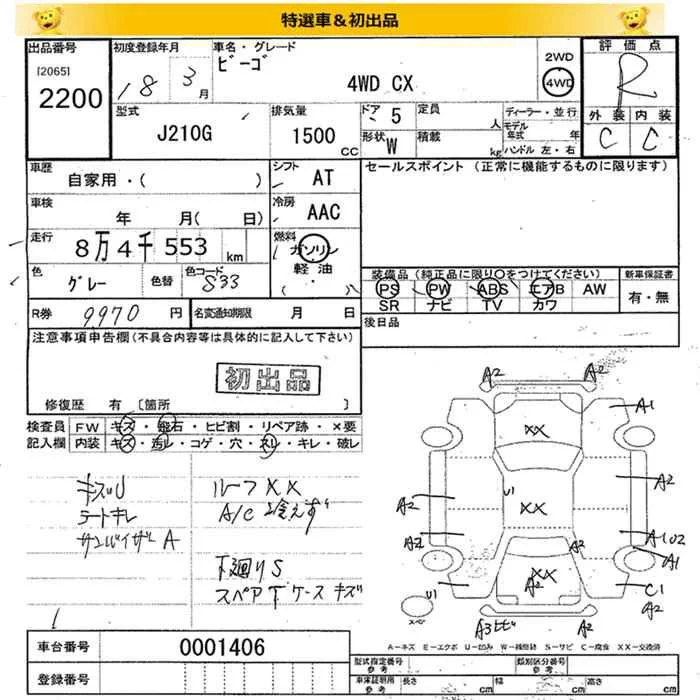 特選車&初出品
出品番号 初度登録年月 車名・グレード 2WD 評価点
[2065] ビーゴ 4WD
2200 18 3月 4WD CX R
型式 排気量 ドア 定員 ディーラー・並行 外装 内装
J210G 1500 CC 5 人 モデル年式 年 C C
形状 W 積載 kg ハンドル 左・右
車歴 シフト セールスポイント (正常に機能するものに限ります)
自家用・( ) AT
車検 冷房
年 月( 日) AAC
走行 燃料
8万4千553 km ガソリン
軽油
・( )
色 色替 色コード 装備品 (純正品に限り○をつけてください) 新車保証書
グレー S33 PS PW ABS エアB AW 有・無
SR ナビ TV カワ
R券 9970 円 名変通知期限 月 日 後日品
注意事項申告欄(不具合内容等は具体的に記入して下さい)
初出品
修復歴 有 〔箇所 〕
検査員 FW キズ・飛石・ヒビ割・リペア跡・×要
記入欄 内装 キズ・汚レ・コゲ・穴・スレ・キレ・破レ
ルーフXX
シートキレ A/C 冷えず
サンバイザーA
下廻りS
スペアTケース キズ
A2 A2
A1
XX
U1 XX
A2 A2
A2 A1 U2
A2 A1
XX
A2
U1 C1
A2
スペア
A3ヒビ A2
A-キズ E-エクボ U-凹み W-補修跡 S-サビ C-腐食 XX-交換済
車台番号 0001406
型式指定番号 類別区分番号
登録番号 車庫証明用 長さ cm 幅 cm 高さ cm